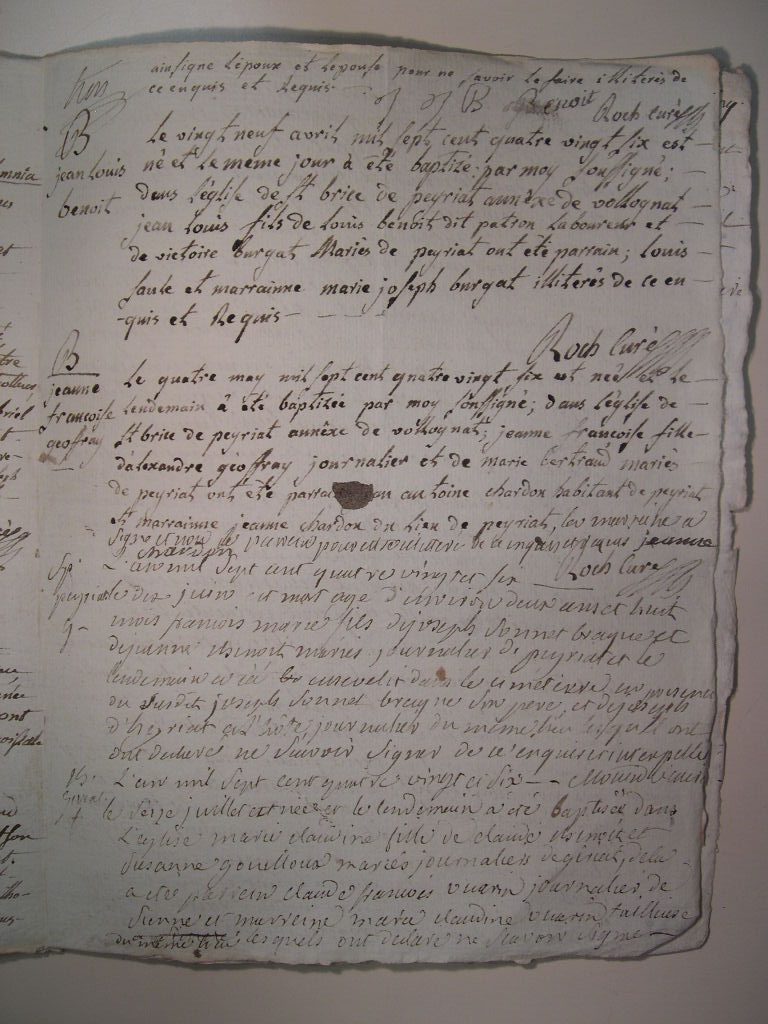 ainsigné l'époux et l'épouse pour ne savoir le faire illiterés de
ce enquis et Requis B Benoit Roch Curé
B
jean louis
benoit
Le vingt neuf avril mil sept cent quatre vingt six est
né et le meme jour à été baptizé; par moy soussigné;
dans l'église de st brice de peyriat annèxe de vollognat
jean louis fils de louis benoit dit patron laboureur et
de victoire burgat Mariés de peyriat ont été parrain; louis
faule et marrainne marie joseph burgat illiterés de ce en-
quis et Requis
Roch Curé
B
jeanne
francoise
geoffray
Le quatre may mil sept cent quatre vingt six est née et le
lendemain à été baptizée par moy soussigné; dans l'église de
st brice de peyriat annèxe de vollognat; jeanne francoise fille
d'alexandre géoffray journalier et de marie bertraud mariés
de peyriat ont été parrain antoine chardon habitant de peyriat
et marrainne jeanne chardon du lieu de peyriat, la marraine a
signé et non le parrain pour etre illitere de ce enquis et requis jeanne
chardon
Roch Curé
L'an mil sept cent quatre vingt et six
le dix juin est mort agé d'environ deux ans et huit
mois francois marie fils de joseph sonnet braque et
de jeanne benoit mariés journalier de peyriat et le
lendemain a été enseveli dans le cimetierre en presence
du susdit joseph sonnet braque son pere, et de joseph
d'heyriat journalier du même lieu lesquels ont
ont declaré ne scavoir signer de ce enquis et interpellés
L'an mil sept cent quatre vingt et six
le seize juillet est née et le lendemain a été baptisée dans
L'eglise marie claudine fille de claude benoit et
susanne gouilloux mariés journaliers
a été parrein claude francois vuarin journalier de
sienne et marreine marie claudine vuarin tailleuse
du même lieu lesquels ont declaré ne scavoir signer